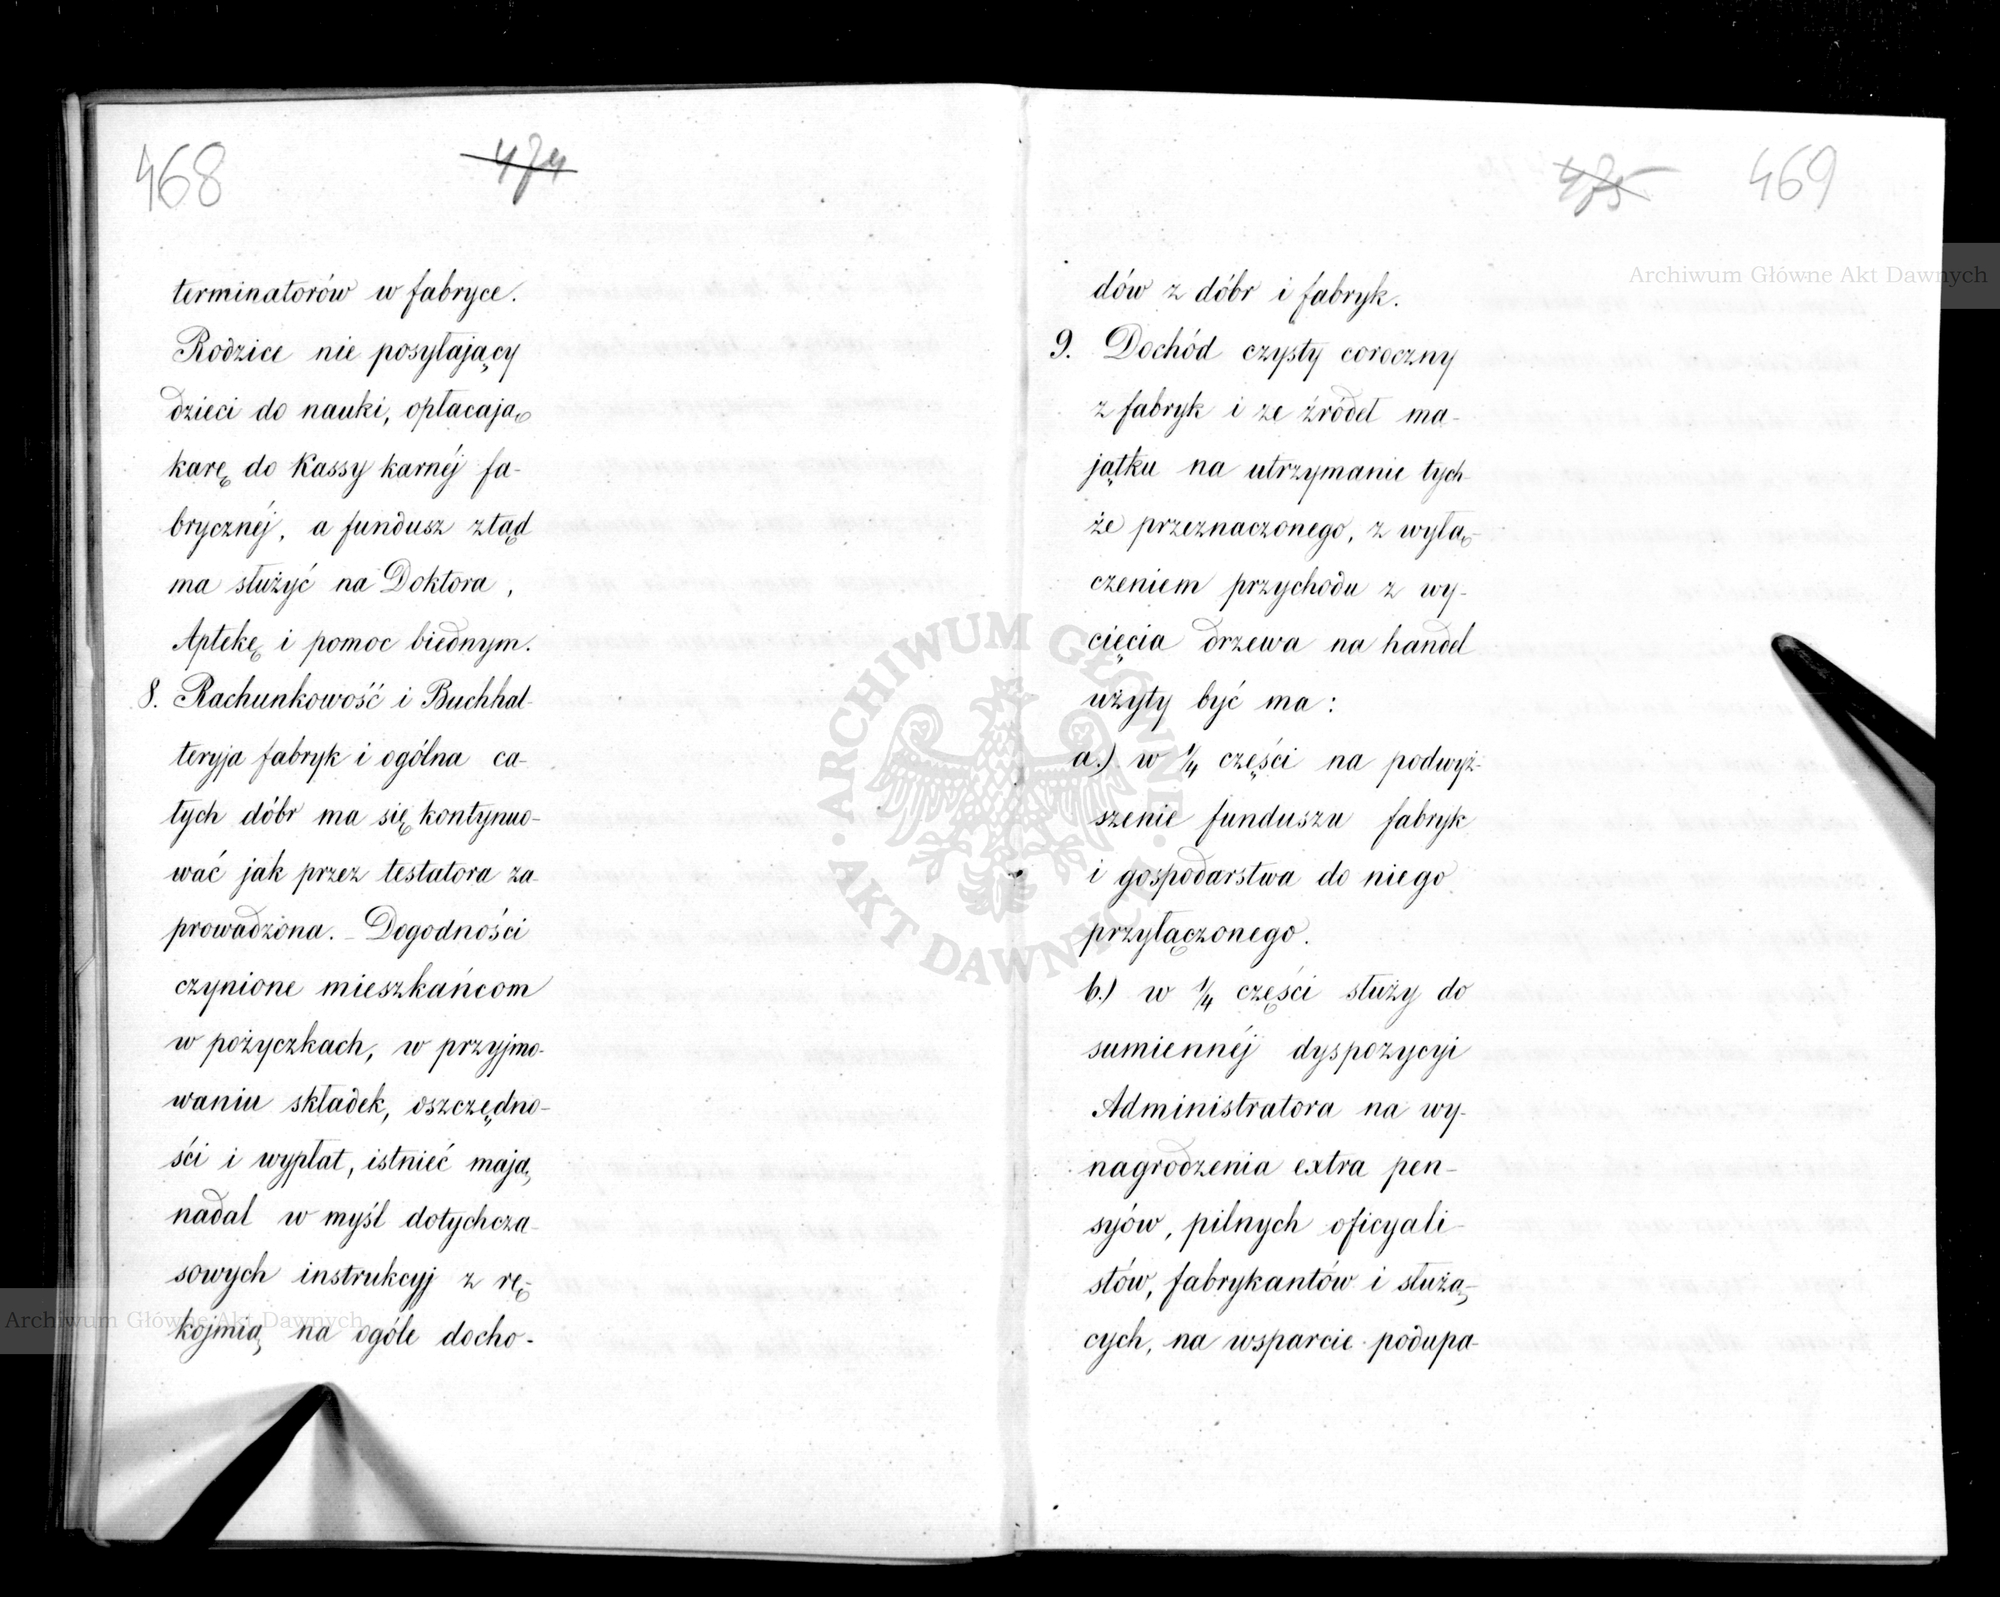 468
474
terminatorów w fabryce.
Rodzice nie posyłający
dzieci do nauki, opłacają
karę do Kassy karnéj fa-
brycznéj, a fundusz ztąd
ma służyć na Doktora,
Aptekę i pomoc biednym.
8. Rachunkowość i Buchhal-
teryja fabryk i ogólna ca-
łych dóbr ma się kontynuo-
wać jak przez testatora za-
prowadzona. – Dogodności
czynione mieszkańcom
w pożyczkach, w przyjmo-
waniu składek, oszczędno-
ści i wypłat, istnieć mają
nadal w myśl dotychcza-
sowych instrukcyj z rę-
kojmią na ogóle docho-
475
469
dów z dóbr i fabryk.
9. Dochód czysty coroczny
z fabryk i ze źródeł ma-
jątku na utrzymanie tych-
że przeznaczonego, z wyłą-
czeniem przychodu z wy-
cięcia drzewa na handel
użyty być ma:
a.) w 1/4 części na podwyż-
szenie funduszu fabryk
i gospodarstwa do niego
przyłączonego.
b.) w 1/4 części służy do
sumiennéj dyspozycyi
Administratora na wy-
nagrodzenia extra pen-
syów, pilnych oficyali-
stów, fabrykantów i służą-
cych, na wsparcie podupa-
Archiwum Główne Akt Dawnych
Archiwum Główne Akt Dawnych
· ARCHIWUM GŁÓWNE · AKT DAWNYCH